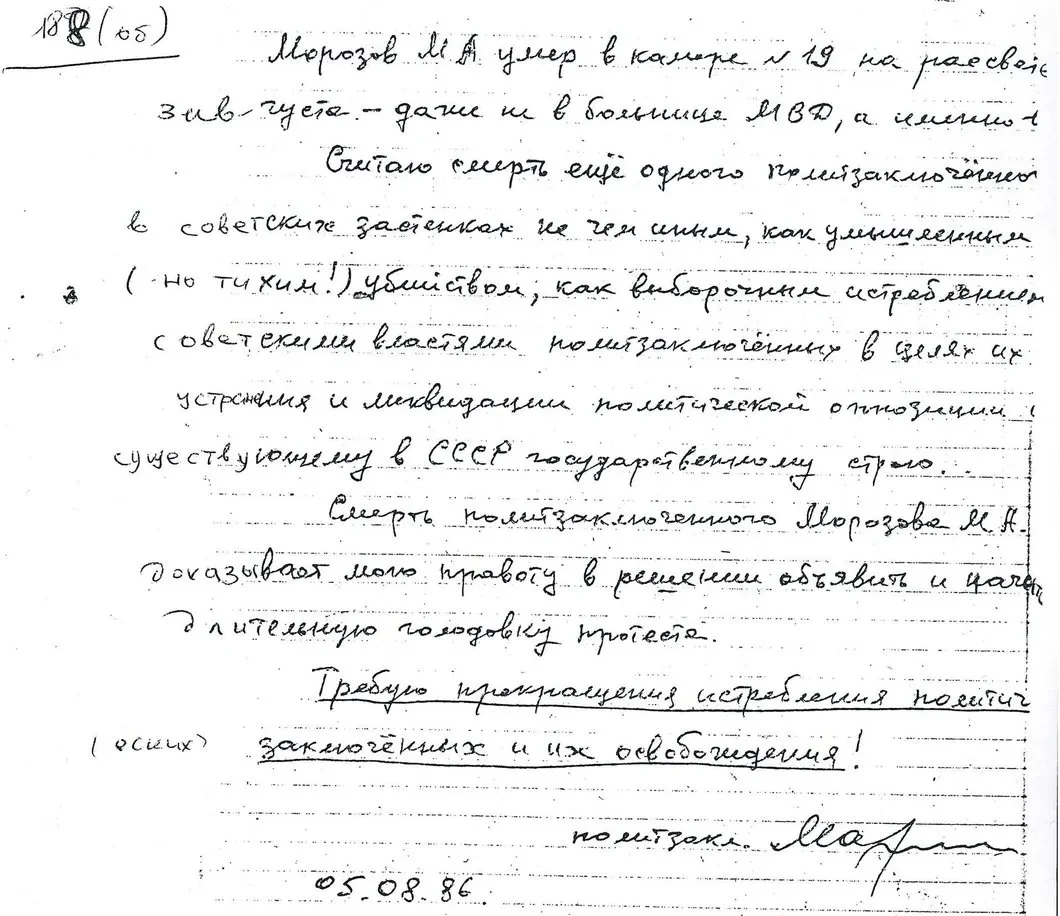 188 (об)
Морозов М А умер в камере N 19 на рассвете
3 августа – даже не в больнице МВД, а именно
Считаю смерть ещё одного политзаключённо
в советских застенках не чем иным, как умышленным
(но тихим!) убийством, как выборочным истреблением
советскими властями политзаключённых в целях их
устранения и ликвидации политической оппозиции
существующему в СССР государственному строю...
Смерть политзаключенного Морозова М. А.
доказывает мою правоту в решении объявить и начать
длительную голодовку протеста.
Требую прекращения истребления политич
(еских) заключённых и их освобождения!
политзакл.
05.08.86.